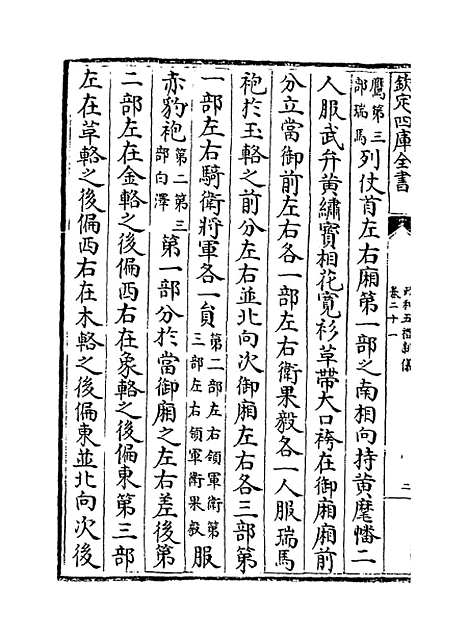 欽定四庫全書
卷二十一
政和五禮新儀
二
鷹第三部瑞馬列仗首左右廂第一部之南相向持黄麾幡二
人服武弁黄繡寳相花寛衫革帶大口袴在御廂廂前
分立當御前左右各一部左右衛果毅各一人服瑞馬
袍於玉輅之前分左右並北向次御廂左右各三部第
一部左右騎衛將軍各一員第二部左右領軍衛第三部左右領軍衛果毅服
赤豹袍第二第三部白澤第一部分於當御廂之左右差後第
二部左在金輅之後偏西右在象輅之後偏東第三部
左在革輅之後偏西右在木輅之後偏東並北向次後